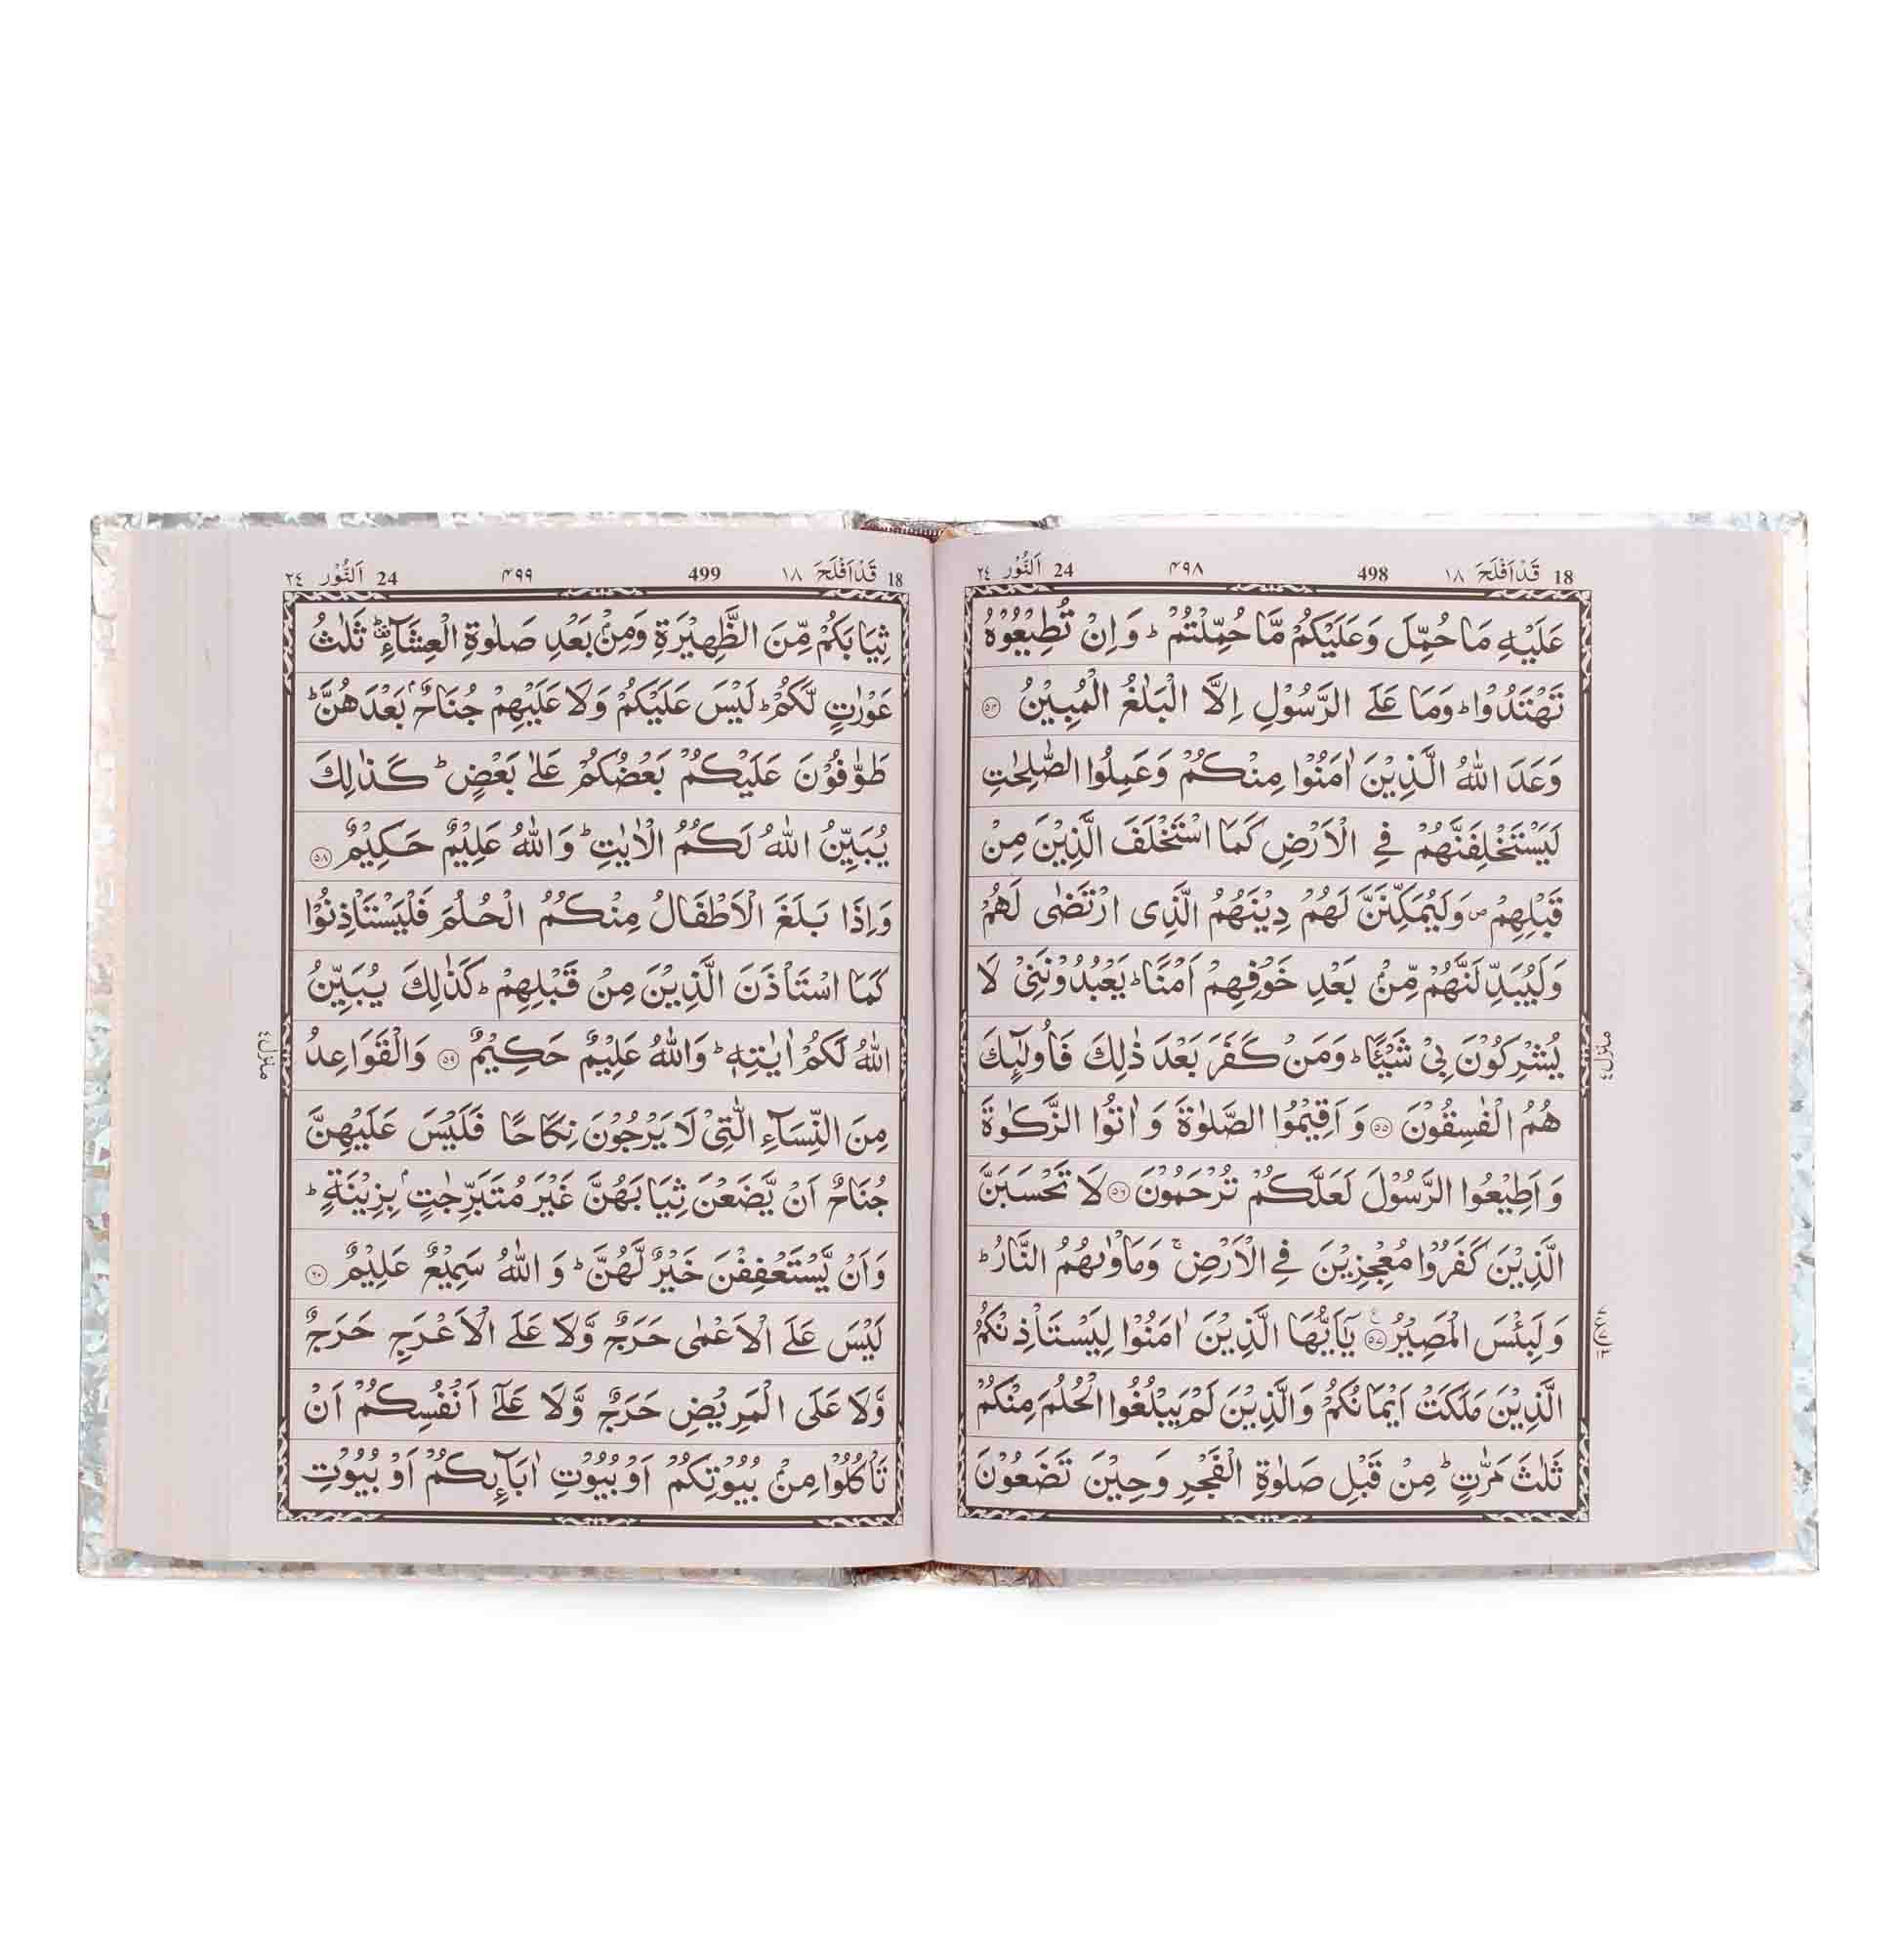 18 قَدْ اَفْلَحَ ١٨ 498 ۴۹۸ 24 اَلنُّوْر ٢٤
عَلَيْهِ مَا حُمِّلَ وَعَلَيْكُمْ مَّا حُمِّلْتُمْ ؕ وَاِنْ تُطِيْعُوْهُ
تَهْتَدُوْا ؕ وَمَا عَلَى الرَّسُوْلِ اِلَّا الْبَلٰغُ الْمُبِيْنُ ۝٥٤
وَعَدَ اللّٰهُ الَّذِيْنَ اٰمَنُوْا مِنْكُمْ وَعَمِلُوا الصّٰلِحٰتِ
لَيَسْتَخْلِفَنَّهُمْ فِى الْاَرْضِ كَمَا اسْتَخْلَفَ الَّذِيْنَ مِنْ
قَبْلِهِمْ ص وَلَيُمَكِّنَنَّ لَهُمْ دِيْنَهُمُ الَّذِى ارْتَضٰى لَهُمْ
وَلَيُبَدِّلَنَّهُمْ مِّنْۢ بَعْدِ خَوْفِهِمْ اَمْنًا ؕ يَعْبُدُوْنَنِىْ لَا
يُشْرِكُوْنَ بِىْ شَيْـًٔا ؕ وَمَنْ كَفَرَ بَعْدَ ذٰلِكَ فَاُولٰٓئِكَ
هُمُ الْفٰسِقُوْنَ ۝٥٥ وَاَقِيْمُوا الصَّلٰوةَ وَاٰتُوا الزَّكٰوةَ
وَاَطِيْعُوا الرَّسُوْلَ لَعَلَّكُمْ تُرْحَمُوْنَ ۝٥٦ لَا تَحْسَبَنَّ
الَّذِيْنَ كَفَرُوْا مُعْجِزِيْنَ فِى الْاَرْضِ ۚ وَمَاْوٰىهُمُ النَّارُ ؕ
وَلَبِئْسَ الْمَصِيْرُ ۝٥٧ يٰۤاَيُّهَا الَّذِيْنَ اٰمَنُوْا لِيَسْتَاْذِنْكُمُ
الَّذِيْنَ مَلَكَتْ اَيْمَانُكُمْ وَالَّذِيْنَ لَمْ يَبْلُغُوا الْحُلُمَ مِنْكُمْ
ثَلٰثَ مَرّٰتٍ ؕ مِنْ قَبْلِ صَلٰوةِ الْفَجْرِ وَحِيْنَ تَضَعُوْنَ
منزل ٤
18 قَدْ اَفْلَحَ ١٨ 499 ۴۹۹ 24 اَلنُّوْر ٢٤
ثِيَابَكُمْ مِّنَ الظَّهِيْرَةِ وَمِنْۢ بَعْدِ صَلٰوةِ الْعِشَآءِ ؕ ثَلٰثُ
عَوْرٰتٍ لَّكُمْ ؕ لَيْسَ عَلَيْكُمْ وَلَا عَلَيْهِمْ جُنَاحٌۢ بَعْدَهُنَّ ؕ
طَوّٰفُوْنَ عَلَيْكُمْ بَعْضُكُمْ عَلٰى بَعْضٍ ؕ كَذٰلِكَ
يُبَيِّنُ اللّٰهُ لَكُمُ الْاٰيٰتِ ؕ وَاللّٰهُ عَلِيْمٌ حَكِيْمٌ ۝٥٨
وَاِذَا بَلَغَ الْاَطْفَالُ مِنْكُمُ الْحُلُمَ فَلْيَسْتَاْذِنُوْا
كَمَا اسْتَاْذَنَ الَّذِيْنَ مِنْ قَبْلِهِمْ ؕ كَذٰلِكَ يُبَيِّنُ
اللّٰهُ لَكُمْ اٰيٰتِهٖ ؕ وَاللّٰهُ عَلِيْمٌ حَكِيْمٌ ۝٥٩ وَالْقَوَاعِدُ
مِنَ النِّسَآءِ الّٰتِىْ لَا يَرْجُوْنَ نِكَاحًا فَلَيْسَ عَلَيْهِنَّ
جُنَاحٌ اَنْ يَّضَعْنَ ثِيَابَهُنَّ غَيْرَ مُتَبَرِّجٰتٍۭ بِزِيْنَةٍ ؕ
وَاَنْ يَّسْتَعْفِفْنَ خَيْرٌ لَّهُنَّ ؕ وَاللّٰهُ سَمِيْعٌ عَلِيْمٌ ۝٦٠
لَيْسَ عَلَى الْاَعْمٰى حَرَجٌ وَّلَا عَلَى الْاَعْرَجِ حَرَجٌ
وَّلَا عَلَى الْمَرِيْضِ حَرَجٌ وَّلَا عَلٰۤى اَنْفُسِكُمْ اَنْ
تَاْكُلُوْا مِنْۢ بُيُوْتِكُمْ اَوْ بُيُوْتِ اٰبَآئِكُمْ اَوْ بُيُوْتِ
منزل ٤